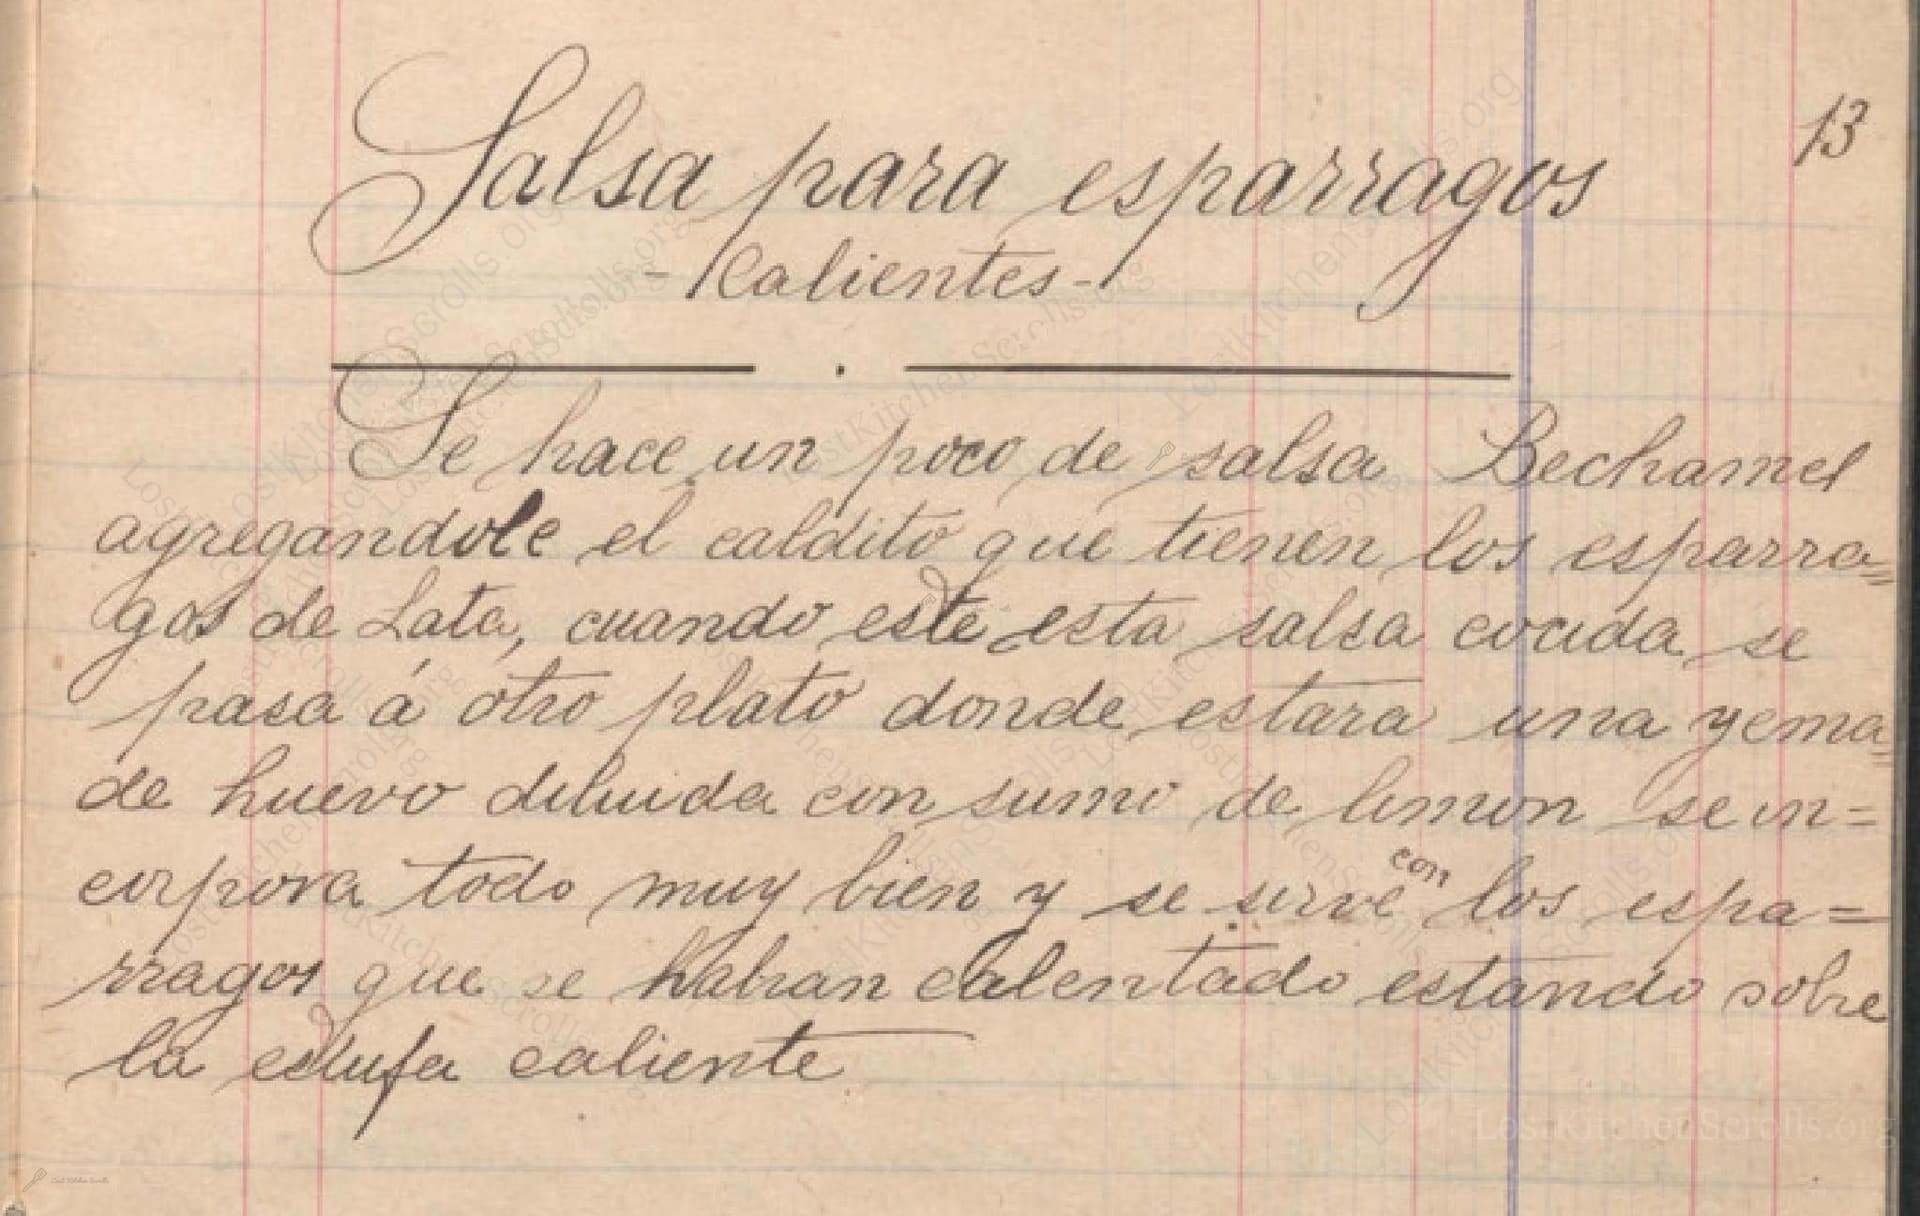 13
Salsa para esparragos
- Calientes -
Se hace un poco de salsa Bechamel
agregandole el caldito que tienen los esparra=
gos de Lata, cuando este esta salsa cocida se
pasa á otro plato donde estara una yema=
de huevo diluida con sumo de limon se in=
corpora todo muy bien y se sirve con los espa=
rragos que se habran calentado estando sobre
la estufa caliente
LostKitchenScrolls.org